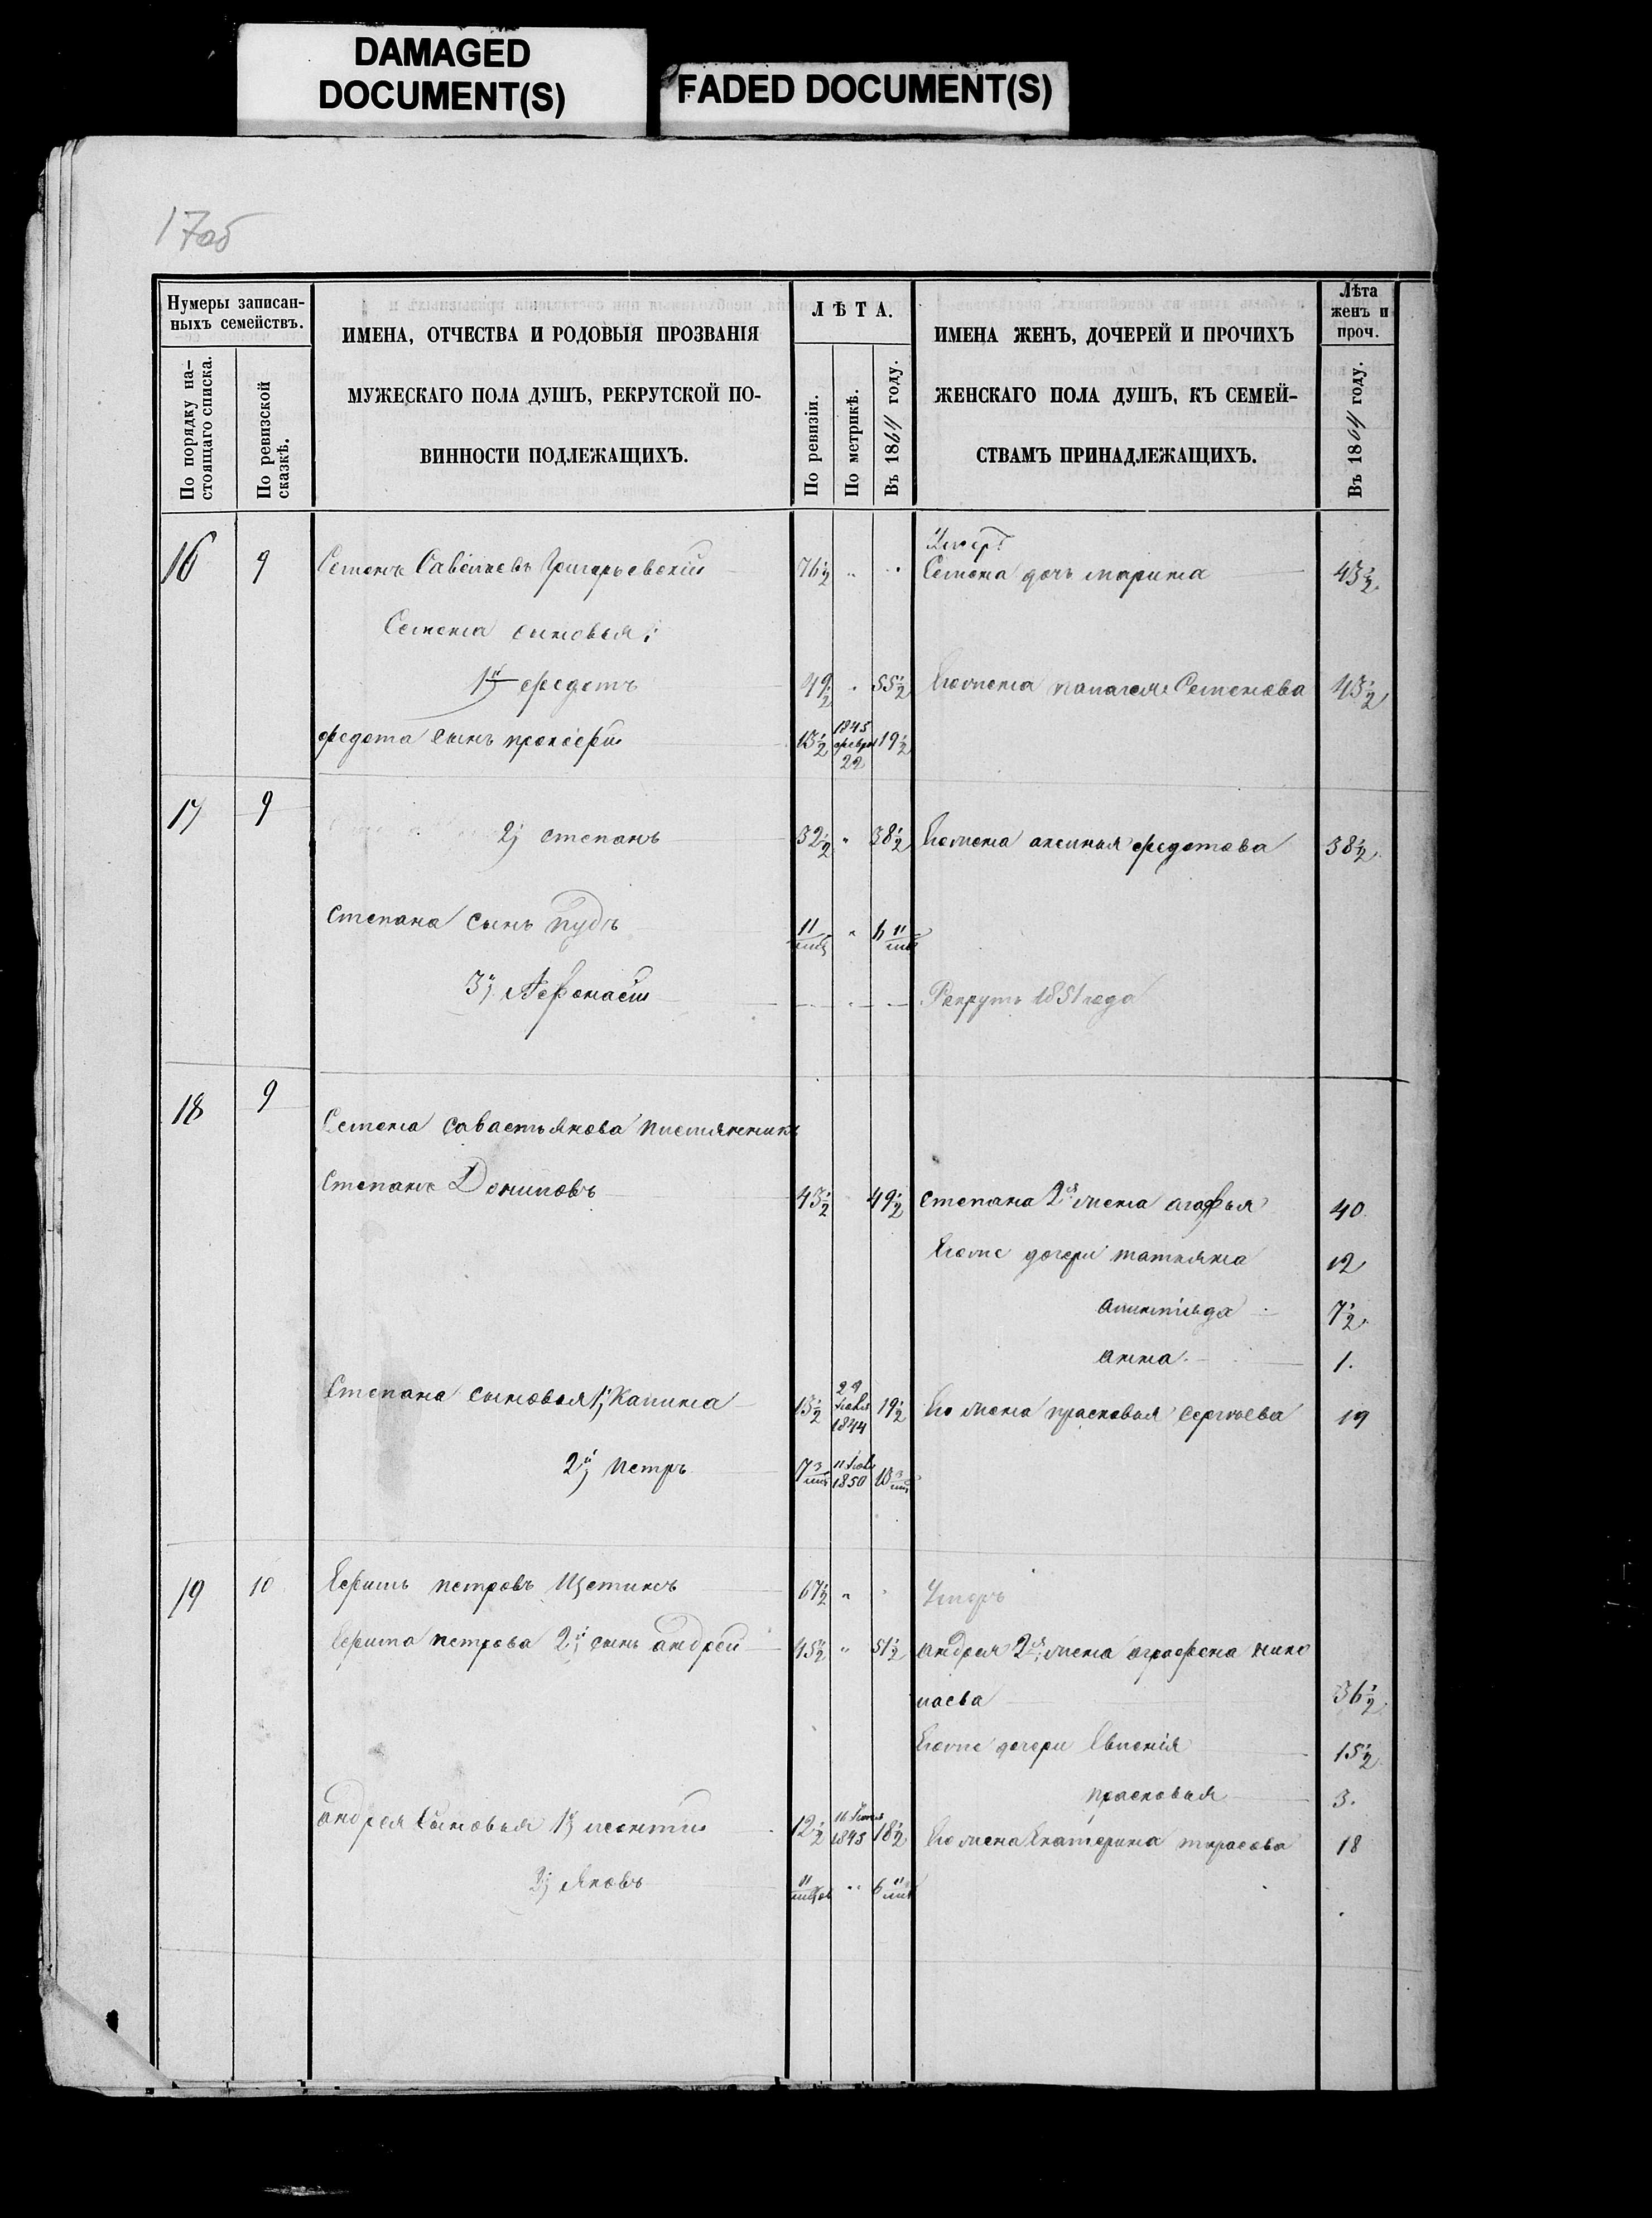 DAMAGED
DOCUMENT(S)
FADED DOCUMENT(S)
17об
Нумеры записан-
ныхъ семействъ.
По порядку на-
стоящаго списка.
По ревизской
сказкѣ.
ИМЕНА, ОТЧЕСТВА И РОДОВЫЯ ПРОЗВАНІЯ
МУЖЕСКАГО ПОЛА ДУШЪ, РЕКРУТСКОЙ ПО-
ВИННОСТИ ПОДЛЕЖАЩИХЪ.
ЛѢТА.
По ревизіи.
По метрикѣ.
Въ 1864 году.
ИМЕНА ЖЕНЪ, ДОЧЕРЕЙ И ПРОЧИХЪ
ЖЕНСКАГО ПОЛА ДУШЪ, КЪ СЕМЕЙ-
СТВАМЪ ПРИНАДЛЕЖАЩИХЪ.
Лѣта
женъ и
проч.
Въ 1864 году.
Умеръ
16 9 Семенъ 76½ " " Семена дочь марина 43½
Семена сыновья:
1й федотъ 49½ " 55½ Его жена Семенова 43½
федота сынъ прокофій 13½ 1845 февр 22 19½
17 9 2й степанъ 32½ " 38½ Его жена аксинья федотова 38½
степана сынъ пудъ 11 мц " 6 11 мц
3й Афонасій — " — Рекрутъ 1851 года
18 9
Семена савастьянова племянникъ
степанъ Даниловъ 43½ 49½ степана 2я жена агафья 40
Егоже дочери татьяна 12
7½
анна 1.
Степана сыновья 1й Калина 13½ 1844 19½ Его жена прасковья сергѣева 19
2й петръ 7 3 мц 1850 13 3 мц
19 10 Ефимъ петровъ Щетинъ 67½ " " Умеръ
Ефима петрова 2й сынъ андрей 45½ " 51½ андрея 2я жена аграфена нико
лаева 36½
Егоже дочери Евгенія 15½
прасковья 3.
андрея сыновья 1й леонтій 12½ 1845 18½ Его жена Екатерина тарасова 18
2й Яковъ 11 мцов " 6 11 мц